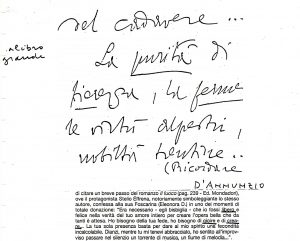 nel cadavere...
libro
grande
La purità di
fierezza, la ferme
le virtù alpestri,
nobiltà trentine..
(Ricordare
D'ANNUNZIO
di citare un breve passo del romanzo Il fuoco (pag. 239 - Ed. Mondadori),
ove il protagonista Stelio Effrena, notoriamente simboleggiante lo stesso
autore, confessa alla sua Foscarina (Eleonora D.) in uno dei momenti di
totale donazione: "Ero estasiato - egli bisbiglia - che io fossi libero e
felice nella verità del tuo amore intiero per creare l'opera bella che da
tanti è attesa. Ho bisogno della tua fede, ho bisogno di gioire e di crea-
re... La tua sola presenza basta per dare al mio spirito una fecondità
incalcolabile. Dianzi, mentre mi tenevi abbracciato, ho sentito all'improv-
viso passare nel silenzio un torrente di musica, un fiume di melodia..."